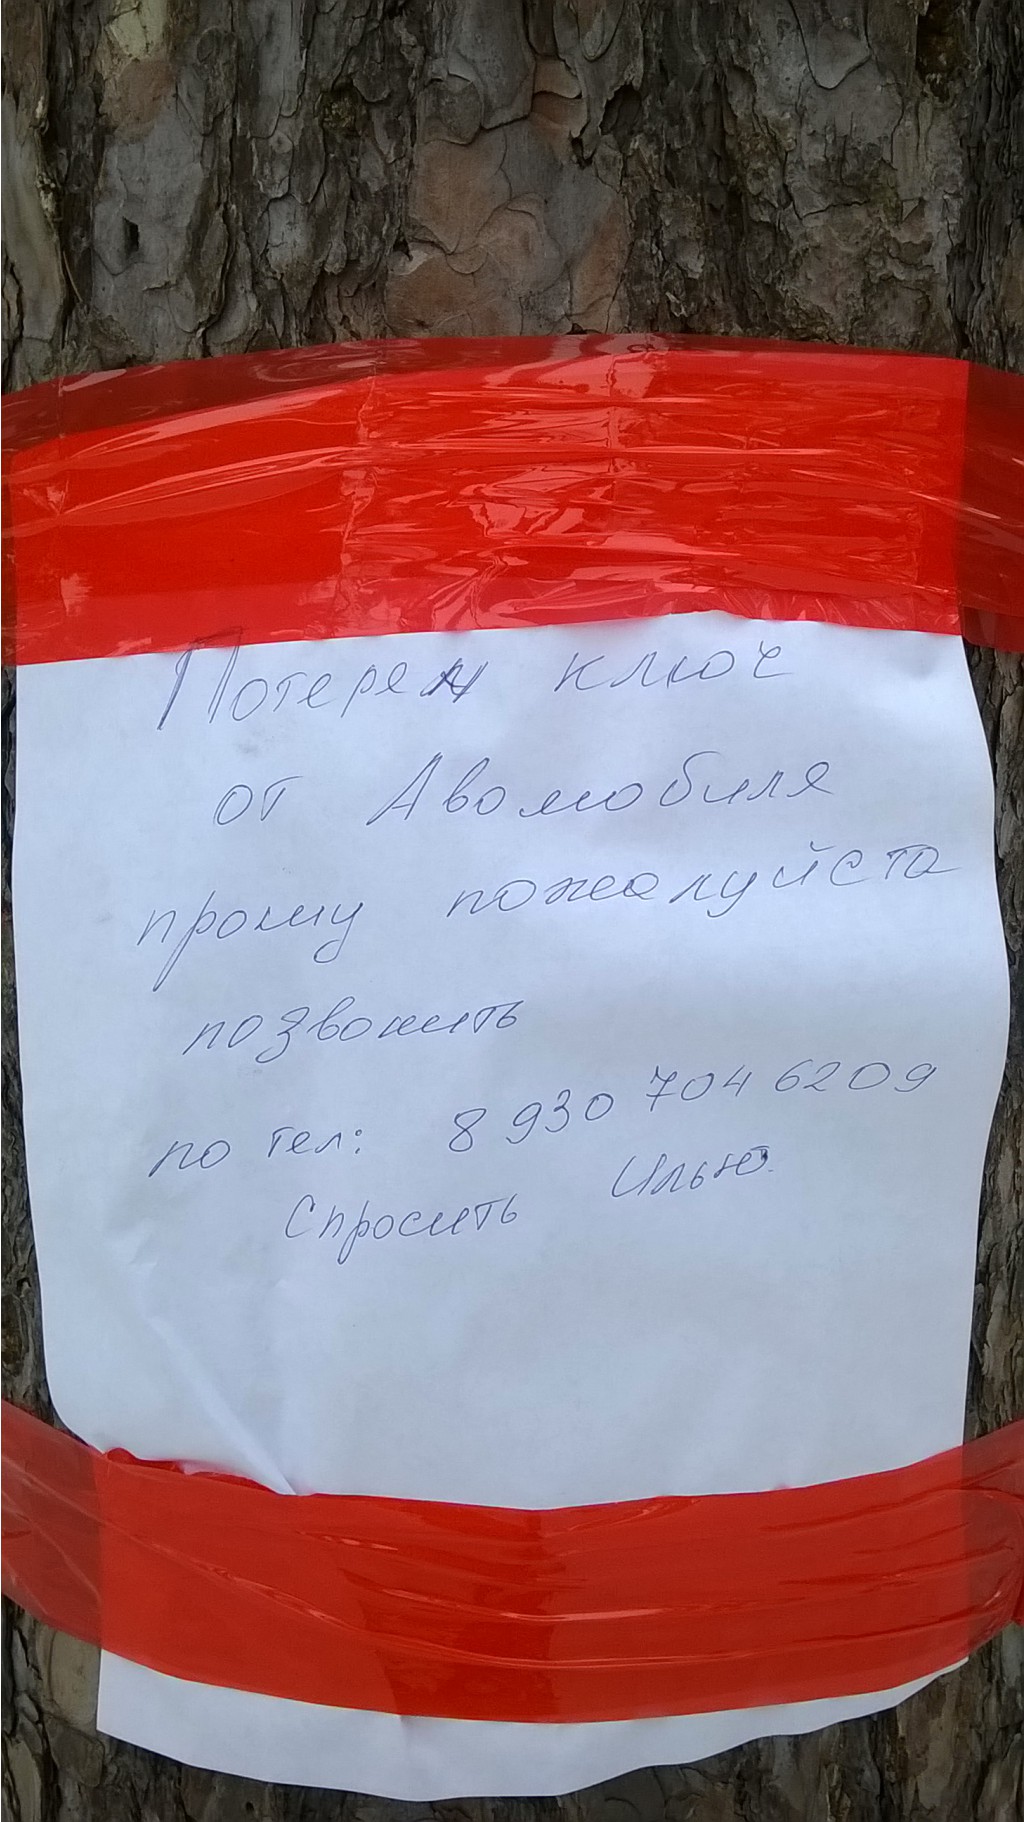 Потерян ключ
от Авомобиля
прошу пожалуйста
позвонить
по тел: 8 930 704 6209
Спросить Илью.